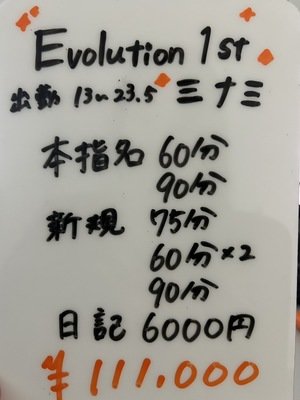 Evolution 1st
出勤 13〜23.5 ミナミ
本指名 60分
90分
新規 75分
60分×2
90分
日記 6000円
¥111.000